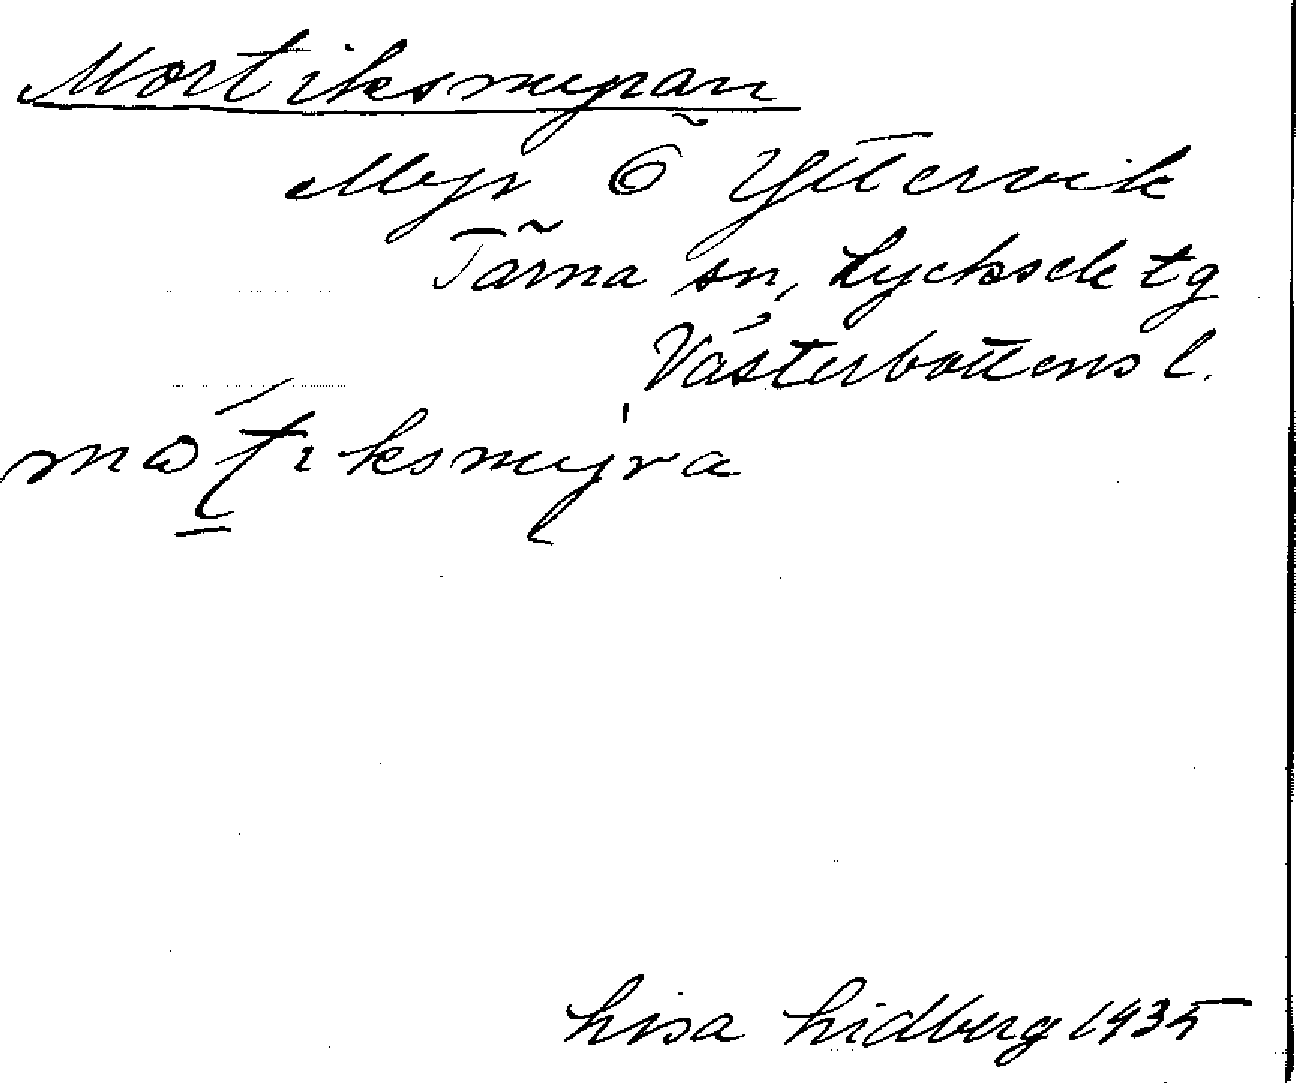 Mortiksmyran
Myr Ö Yttervik
Tärna sn, Lycksele tg
Västerbottens l.
måtiksmyra
Lisa Lidberg 1935